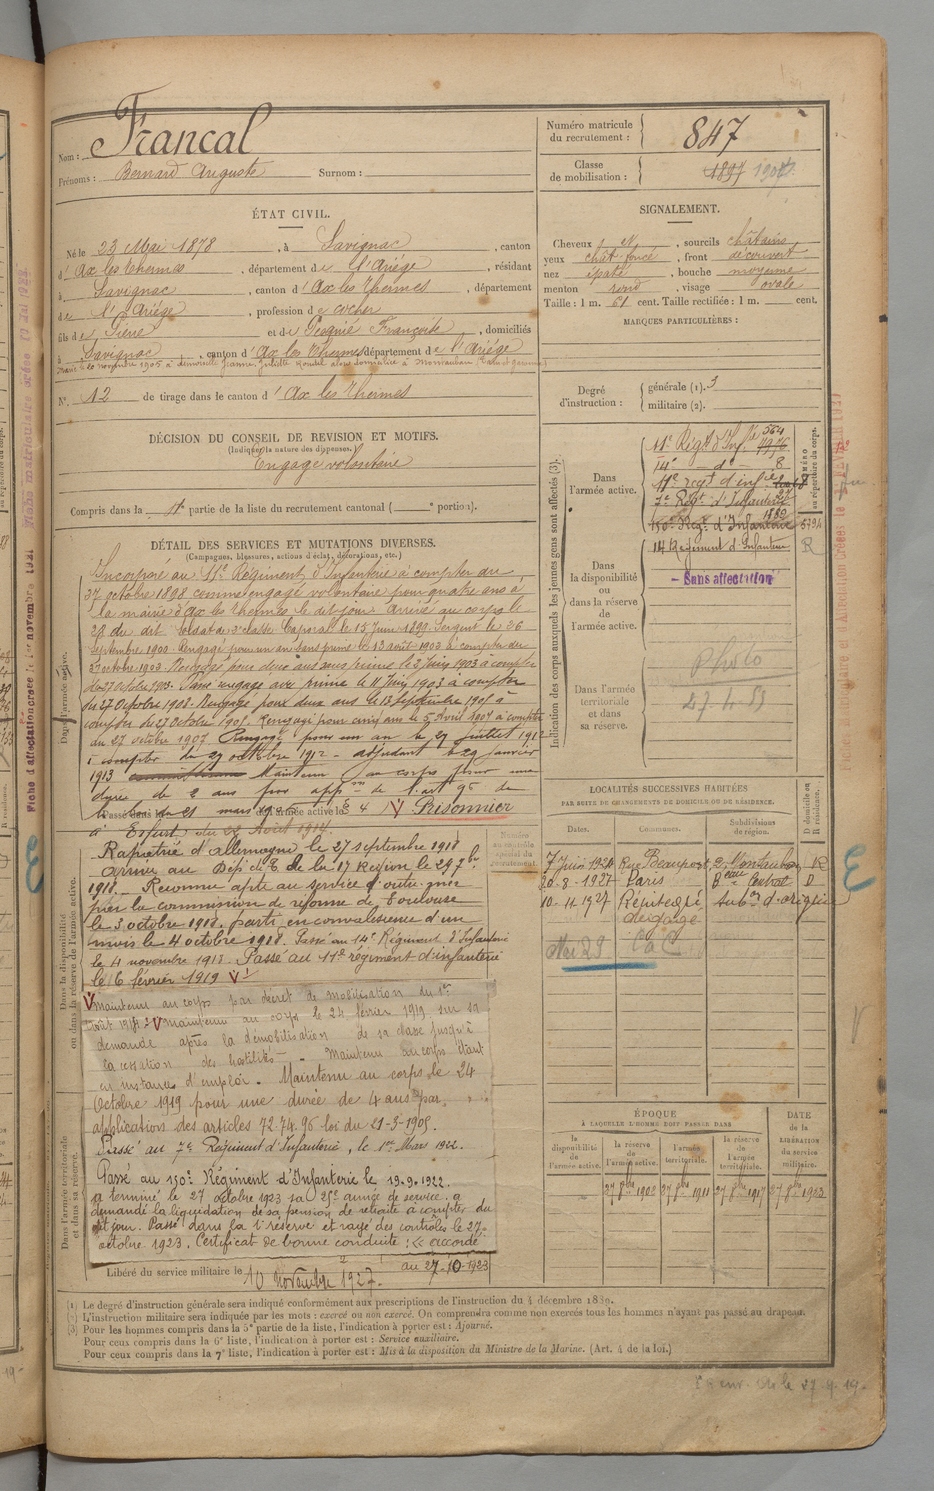 Nom : Francal
Prénoms : Bernard Auguste Surnom :
Numéro matricule du recrutement : 847
Classe de mobilisation : 1897
ÉTAT CIVIL.
Né le 23 Mai 1878, à Savignac, canton
d'Ax les Thermes, département de l'Ariége, résidant
à Savignac, canton d'Ax les Thermes, département
de l'Ariége, profession de cocher
fils de Pierre et de Françoise, domiciliés
à Savignac, canton d'Ax les Thermes, département de l'Ariége
Marié le 20 novembre 1905 à demoiselle Jeanne Juliette domiciliée à Montauban (Tarn et Garonne)
N° 12 de tirage dans le canton d'Ax les Thermes
SIGNALEMENT.
Cheveux, sourcils châtains
yeux chât. foncé, front découvert
nez épaté, bouche moyenne
menton rond, visage ovale
Taille : 1 m. 61 cent. Taille rectifiée : 1 m. cent.
MARQUES PARTICULIÈRES :
Degré d'instruction : générale (1). 3
militaire (2).
DÉCISION DU CONSEIL DE REVISION ET MOTIFS.
(Indiquer la nature des dispenses.)
Engagé volontaire
Compris dans la partie de la liste du recrutement cantonal ( portion).
DÉTAIL DES SERVICES ET MUTATIONS DIVERSES.
(Campagnes, blessures, actions d'éclat, décorations, etc.)
Dans l'armée active.
Incorporé au 11e Régiment d'Infanterie à compter du
27 octobre 1898 comme engagé volontaire pour quatre ans à
la mairie d'Ax les Thermes le dit jour. Arrivé au corps le
28 du dit soldat de 2e classe. Caporal le 15 Juin 1899. Sergent le 26
septembre 1900. Rengagé pour un an sans prime le 13 août 1903 à compter du
27 octobre 1903. Rengagé pour deux ans sans prime le 3 Juin 1903 à compter
du 27 octobre 1903. Passé rengagé avec prime le 11 Juin 1903 à compter
du 27 Octobre 1903. Rengagé pour deux ans le 13 septembre 1905 à
compter du 27 Octobre 1905. Rengagé pour cinq ans le 5 Avril 1907 à compter
du 27 octobre 1907. Rengagé pour un an le 29 juillet 1912
à compter du 27 octobre 1912 - adjudant le 29 Janvier
1913 Maintenu au corps pour une
durée de 2 ans par appon de l'art 95 de
la loi du 21 mars 1905
Passé dans la réserve de l'armée active le
V Prisonnier
à Erfurt du 22 Août 1914.
Numéro au contrôle spécial du recrutement.
Dans la disponibilité ou dans la réserve de l'armée active.
Rapatrié d'allemagne le 27 septembre 1918
arrivé au Dépôt de la 17 Region le 29 7bre
1918. Reconnu apte au service d'outre mer
par la commission de réforme de Toulouse
le 3 octobre 1918. parti en convalescence d'un
mois le 4 octobre 1918. Passé au 14e Régiment d'Infanterie
le 4 novembre 1918. Passé au 11e régiment d'infanterie
le 16 février 1919 V
V maintenu au corps par décret de mobilisation du 1er
Août 1914. V maintenu au corps le 24 février 1919 sur sa
demande après la démobilisation de sa classe jusqu'à
la cessation des hostilités - Maintenu au corps étant
en instance d'emploi. Maintenu au corps le 24
Octobre 1919 pour une durée de 4 ans par
application des articles 72.74.96 loi du 21-3-1905.
Passé au 7e Régiment d'Infanterie, le 1er Mars 1922.
Passé au 150e Régiment d'Infanterie le 19.9.1922.
a terminé le 27 octobre 1923 sa 25e année de service. a
demandé la liquidation de sa pension de retraite à compter du
dit jour. Passé dans la réserve et rayé des contrôles le 27
octobre 1923. Certificat de bonne conduite : "accordé
au 27-10-1923
Dans l'armée territoriale et dans sa réserve.
Libéré du service militaire le 10 Novembre 1927.
Indication des corps auxquels les jeunes gens sont affectés (3).
NUMÉRO au répertoire du corps.
Dans l'armée active.
11e Régt d'Inf. 564
14e - do - 8
11e regt d'infie
7e Regt d'Infanterie 27
150e Regt d'Infanterie 1882
5794
14 Régiment d'Infanterie R
Dans la disponibilité ou dans la réserve de l'armée active.
- Sans affectation
Dans l'armée territoriale et dans sa réserve.
Photo
27.4.83
LOCALITÉS SUCCESSIVES HABITÉES
PAR SUITE DE CHANGEMENTS DE DOMICILE OU DE RÉSIDENCE.
Dates. Communes. Subdivisions de région. D domicile ou R résidence.
7 Juin 1924 Rue Beaupost, 2. Montauban R
20-8-1927 Paris Beau Central D
10-11-1927 Répertorié subon d'origine
dégagé
Mai 28 C à C
ÉPOQUE
À LAQUELLE L'HOMME DOIT PASSER DANS
la disponibilité de l'armée active. la réserve de l'armée active. l'armée territoriale. la réserve de l'armée territoriale.
DATE de la LIBÉRATION du service militaire.
27 8bre 1908 27 8bre 1911 27 8bre 1917 27 8bre 1923
(1) Le degré d'instruction générale sera indiqué conformément aux prescriptions de l'instruction du 4 décembre 1889.
(2) L'instruction militaire sera indiquée par les mots : exercé ou non exercé. On comprendra comme non exercés tous les hommes n'ayant pas passé au drapeau.
(3) Pour les hommes compris dans la 5e partie de la liste, l'indication à porter est : Ajourné.
Pour ceux compris dans la 6e liste, l'indication à porter est : Service auxiliaire.
Pour ceux compris dans la 7e liste, l'indication à porter est : Mis à la disposition du Ministre de la Marine. (Art. 4 de la loi.)